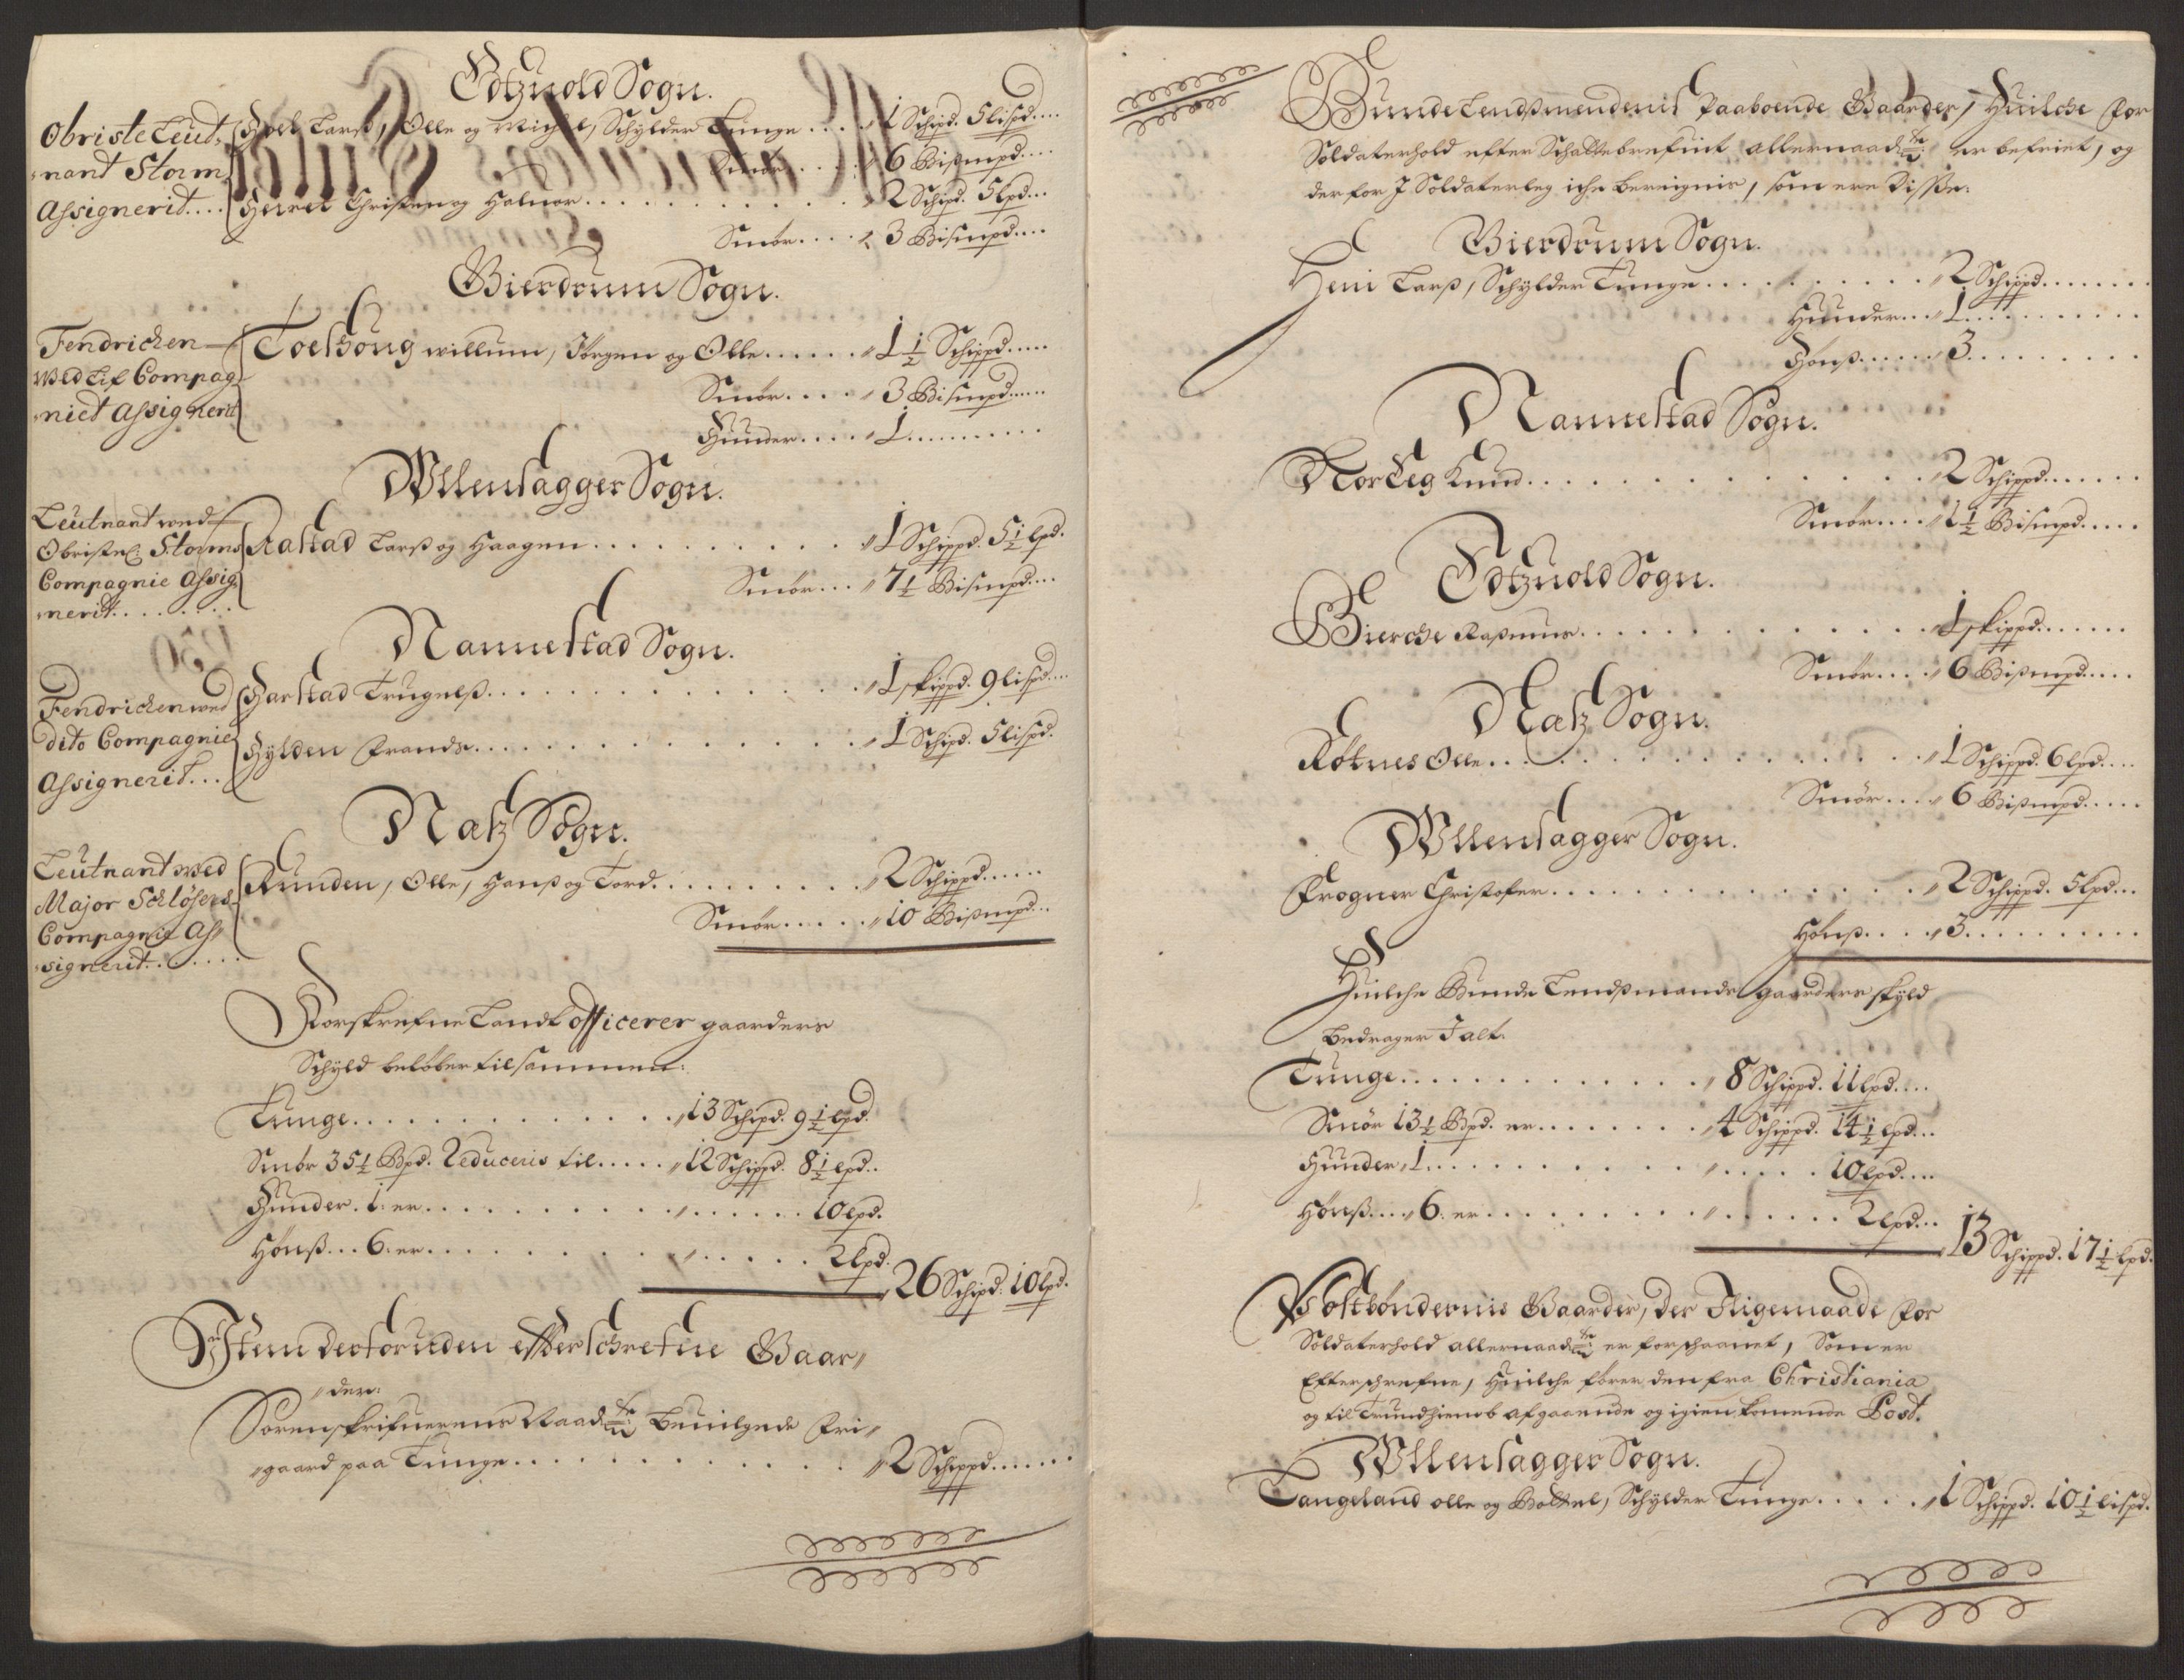 Edtzuold Sogn.
Obriste Leut-
nant Storm
Assignerit....
Hoel Larß, Olle og Michel, Schylder Tunge.... 1 Schipd. 5 lispd....
Smør.... 6 Bißmpd....
Herrel Christen og Halvor............ 2 Schipd. 5 lpd...
Smør.... 3 Bismpd....
Gierdrum Sogn.
Fendrichen
wed Lif Compag-
niet Assignerit
Toelsoug willum, Jørgen og Olle...... 1½ Schippd.....
Smør.... 3 Bismpd.....
Hunder.... 1..........
Wllensagger Sogn.
Leutnant wed
Obristel: Storms
Compagnie Assig-
nerit........
Rastad Larß og Haagen.......... 1 Schippd. 5½ lpd.
Smør... 7½ Bismpd....
Nannestad Sogn.
Fendrichen wed
dito Compagnie
Assignerit...
Harstad Trugelß.............. 1 skippd. 9 lispd...
Hylden Frands.............. 1 Schipd. 5 lispd.
Natz Sogn.
Leutnant wed
Major Schløsers
Compagnie As-
signerit.......
Runden, Olle, Hanß og Tord.......... 2 Schippd......
Smør..... 10 Bißmpd...
Forskrefne Landt officerer gaarders
Schyld beløber tilsammen:
Tunge............. 13 Schipd. 9½ lpd.
Smør 35½ Bpd. Reduceris til..... 12 Schippd. 8½ lpd..
Hunder. 1. er................ 10 lpd.
Hønß... 6. er................ 2 lpd. 26 Schipd. 10 lpd.
Item dertoruden effterschrefne Gaar-
der:
Sorenskrifuerens Naadste Beuilgede Fri-
gaard paa Tunge............. 2 Schippd......
Bunde Lendßmendenis Paaboende Gaarder, Huilche for
Soldaterhold efter Schattebrefuit allernaadste er befriet, og
der for J Soldaterleg iche bereignis, som ere Disse:
Gierdrum Sogn.
Heni Larß, Schylder Tunge.......... 2 Schippd........
Hunder... 1..........
Hønß...... 3..........
Nannestad Sogn.
Nordleg Knud.............. 2 Schippd.......
Smør.... 1½ Bismpd.....
Edtzuold Sogn.
Bierche Raßmus.............. 1 skippd.......
Smør.... 6 Bißmpd.....
Natz Sogn.
Røtnes Olle.............. 1 Schippd. 6 lpd....
Smør.... 6 Bißmpd.....
Wllensagger Sogn.
Frogner Christofer.............. 2 Schippd. 5 lpd...
Hønß.... 3..........
Huilche Bunde Lendßmands gaarders skyld
bedrager J alt.
Tunge............. 8 Schippd. 11 lpd....
Smør 13½ Bpd. er........ 4 Schippd. 14½ lpd...
Hunder, 1................ 10 lpd....
Hønß.... 6. er................ 2 lpd... 13 Schippd. 17½ lpd.
Postbøndernis Gaarder, der Ligemaade for
Soldaterhold allernaadste er forschaanet, Som er
Efterschrefne, Huilche fører den fra Christiania
og til Trundhiemb afgaaende og igien komende Post.
Wllensagger Sogn.
Langeland olle og Bottel, Schylder Tunge...... 1 Schippd. 10½ lispd.